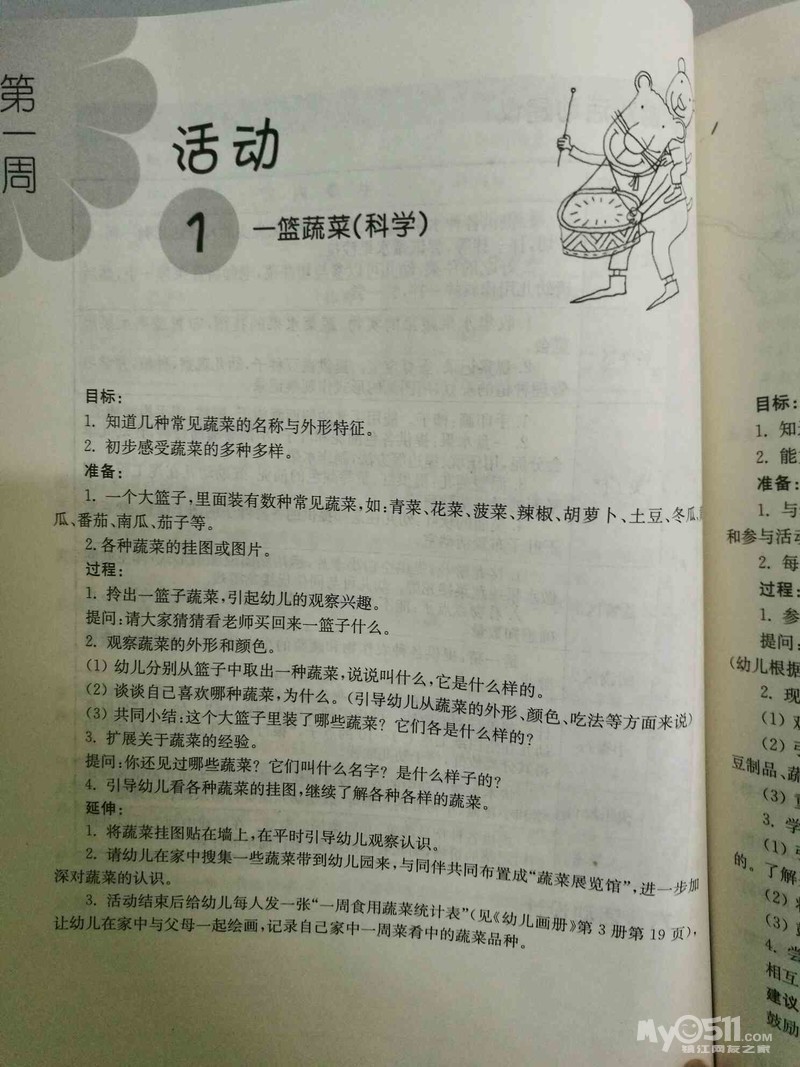 第一周
活动
1 一篮蔬菜(科学)
目标:
1. 知道几种常见蔬菜的名称与外形特征。
2. 初步感受蔬菜的多种多样。
准备:
1. 一个大篮子,里面装有数种常见蔬菜,如:青菜、花菜、菠菜、辣椒、胡萝卜、土豆、冬瓜、
瓜、番茄、南瓜、茄子等。
2. 各种蔬菜的挂图或图片。
过程:
1. 拎出一篮子蔬菜,引起幼儿的观察兴趣。
提问:请大家猜猜看老师买回来一篮子什么。
2. 观察蔬菜的外形和颜色。
(1) 幼儿分别从篮子中取出一种蔬菜,说说叫什么,它是什么样的。
(2) 谈谈自己喜欢哪种蔬菜,为什么。(引导幼儿从蔬菜的外形、颜色、吃法等方面来说)
(3) 共同小结:这个大篮子里装了哪些蔬菜? 它们各是什么样的?
3. 扩展关于蔬菜的经验。
提问:你还见过哪些蔬菜? 它们叫什么名字? 是什么样子的?
4. 引导幼儿看各种蔬菜的挂图,继续了解各种各样的蔬菜。
延伸:
1. 将蔬菜挂图贴在墙上,在平时引导幼儿观察认识。
2. 请幼儿在家中搜集一些蔬菜带到幼儿园来,与同伴共同布置成“蔬菜展览馆”,进一步加
深对蔬菜的认识。
3. 活动结束后给幼儿每人发一张“一周食用蔬菜统计表”(见《幼儿画册》第 3 册第 19 页),
让幼儿在家中与父母一起绘画,记录自己家中一周菜肴中的蔬菜品种。
目标:
1. 知
2. 能
准备:
1. 与
和参与活动
2. 每
过程:
1. 参
提问:
(幼儿根据
2. 现
(1) 观
(2) 引
豆制品、蔬
(3)
3. 学
(1) 引
的。了解
(2) 将
(3)
4. 尝
相互
建议
鼓励
My0511.com
镇江网友之家